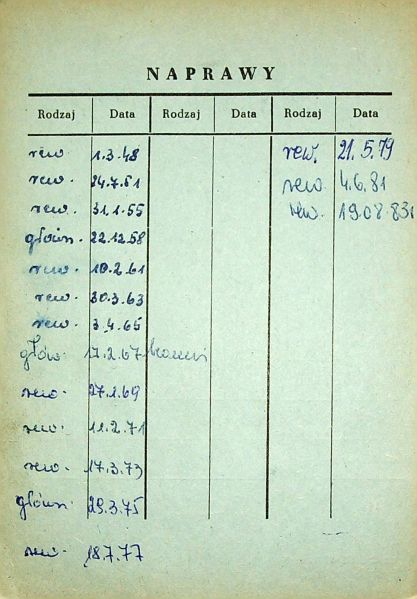 NAPRAWY
Rodzaj Data Rodzaj Data Rodzaj Data
rew. 1.3.48
rew. 24.7.51
rew. 31.1.55
główn. 22.12.58
rew. 10.2.61
rew. 30.3.63
rew. 3.4.65
głów. 17.2.67
rew. 27.1.69
rew. 11.2.71
rew. 17.3.73
główn. 25.3.75
rew. 18.7.77
rew. 21.5.79
rew. 4.6.81
rew. 19.08.83